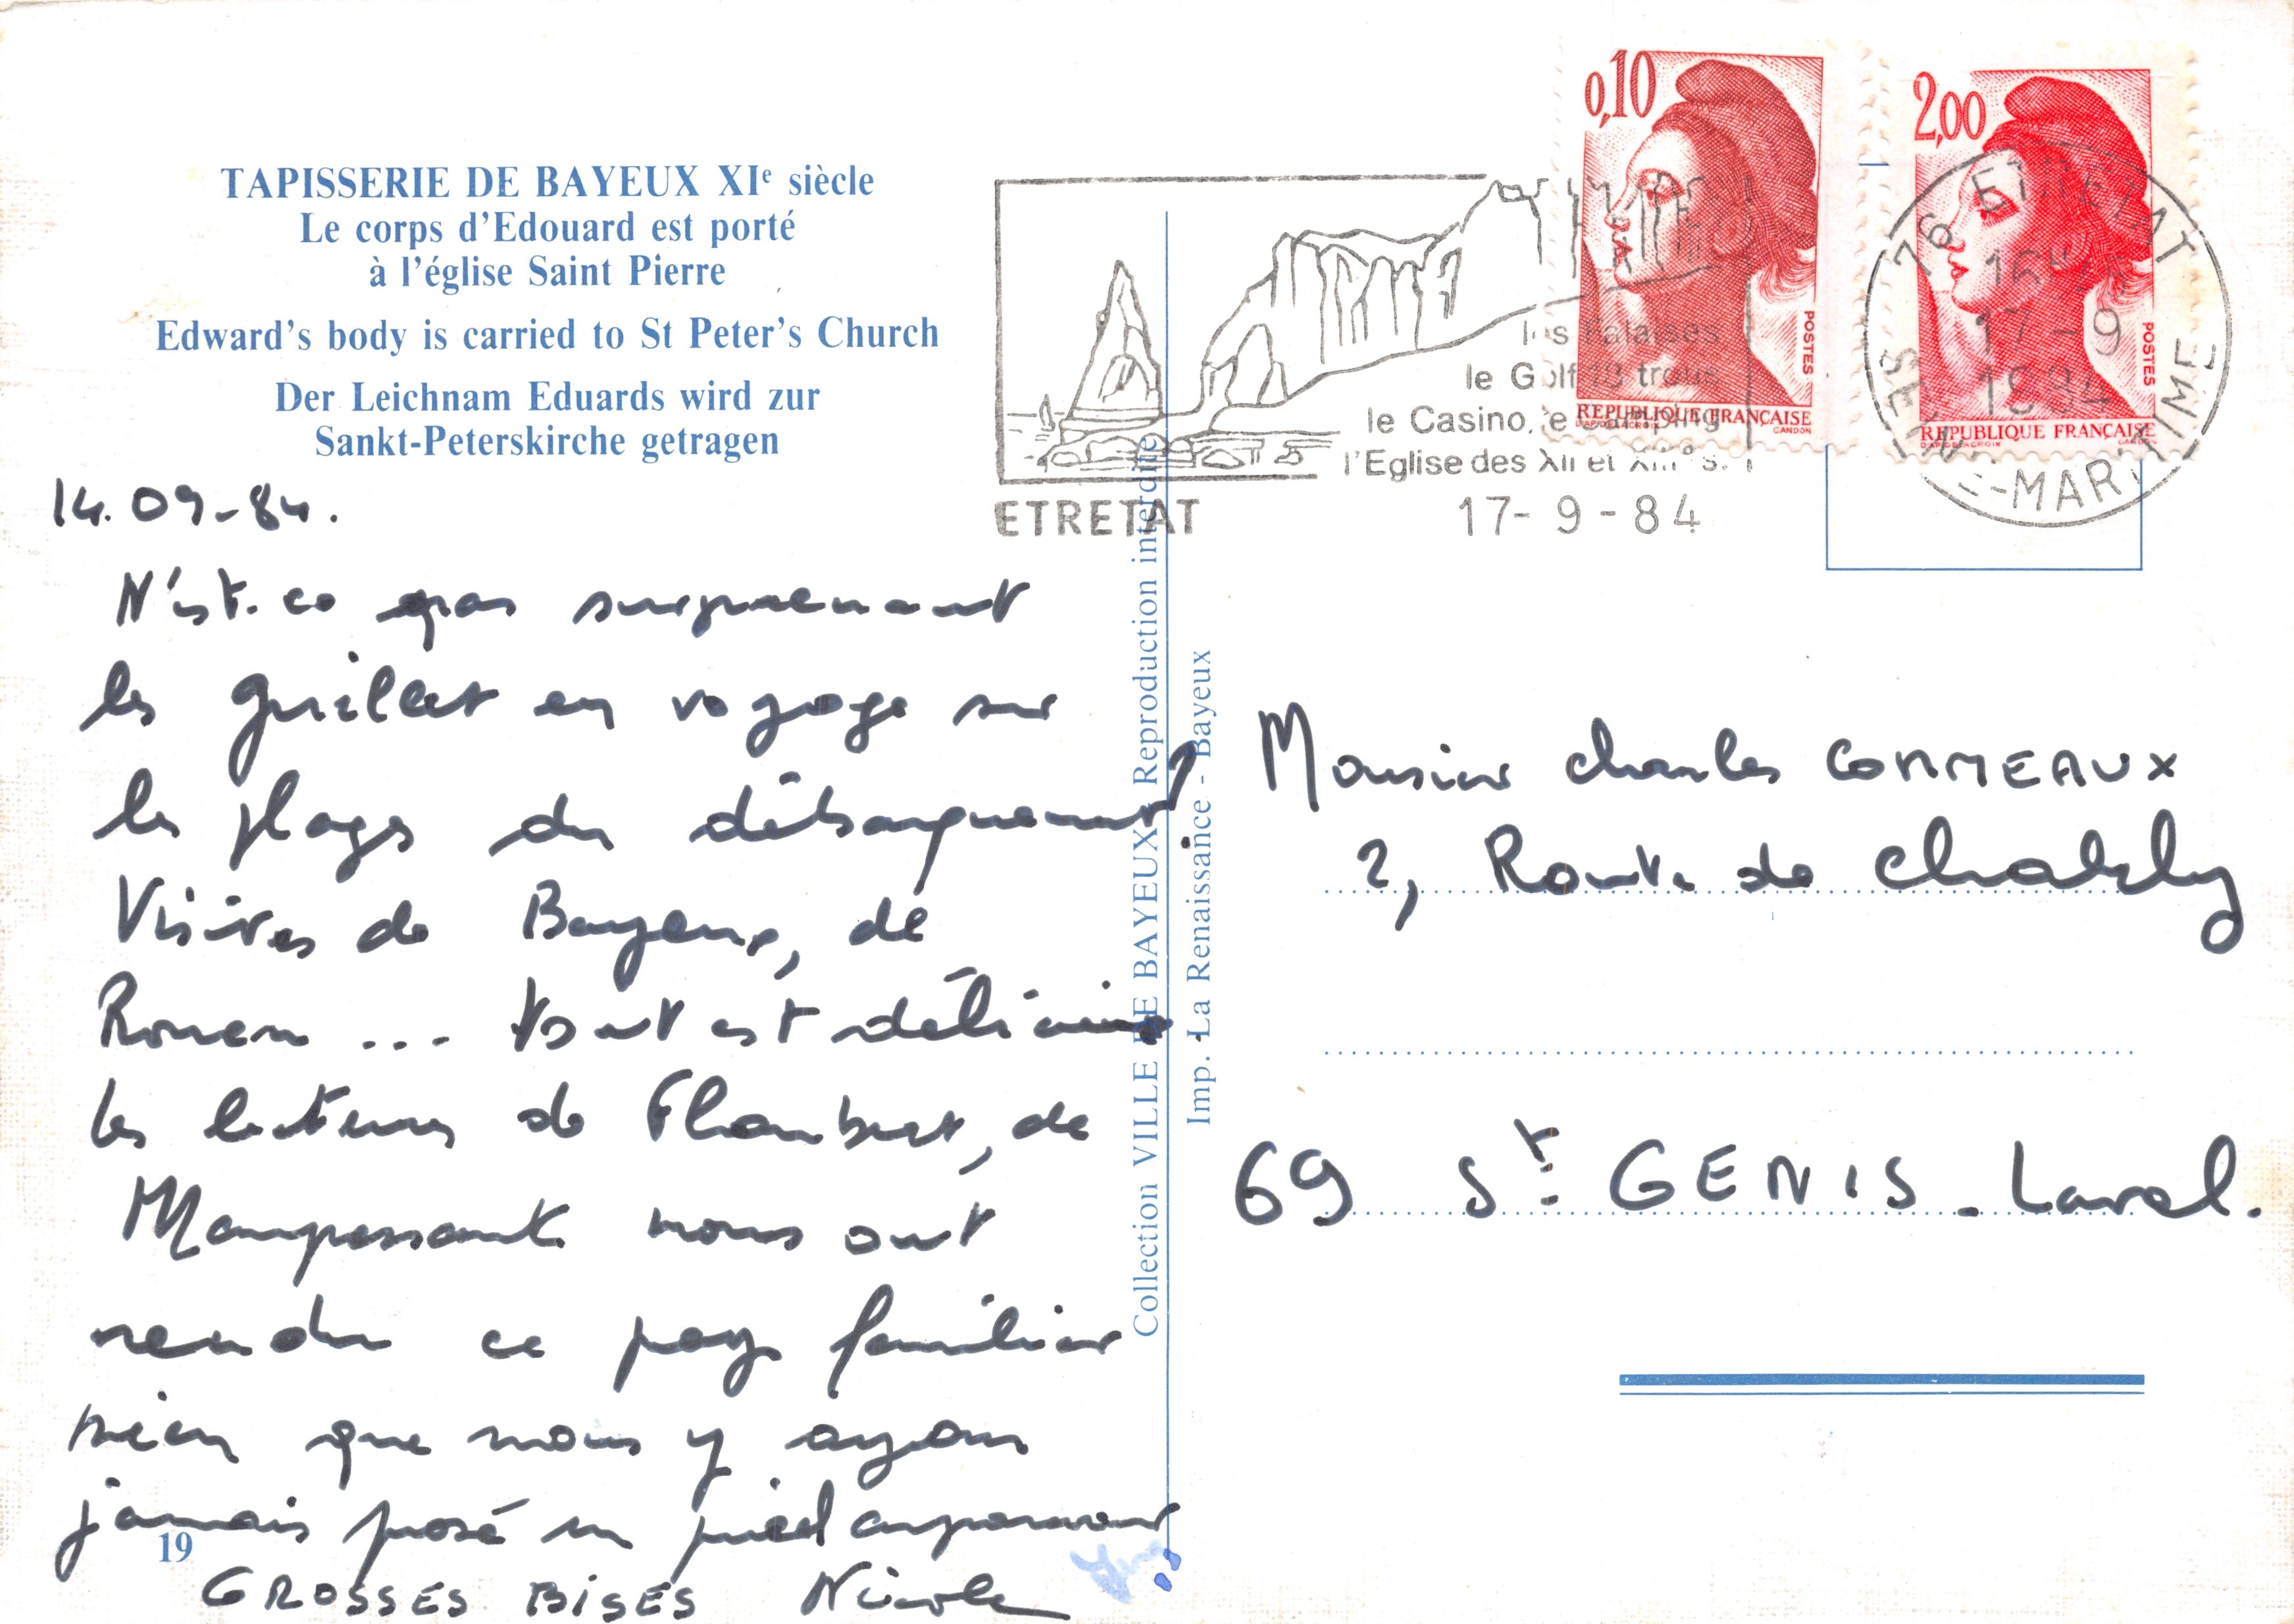 TAPISSERIE DE BAYEUX XIe siècle
Le corps d'Edouard est porté
à l'église Saint Pierre
Edward's body is carried to St Peter's Church
Der Leichnam Eduards wird zur
Sankt-Peterskirche getragen
14.09-84.
N'est-ce pas surprenant
les Guillet en voyage sur
les plages du débarquement?
Visites de Bayeux, de
Rouen ... tout est délicieux
les lectures de Flaubert, de
Maupassant nous ont
rendu ce pays familier
bien que nous y ayons
jamais posé un pied auparavant
!
19
GROSSES BISES Nicole
Collection VILLE DE BAYEUX - Reproduction interdite
Imp. La Renaissance - Bayeux
ETRETAT
les Falaises
le Golf 18 trous
le Casino, le Camping
l'Eglise des XII et XIIIe s.
17-9-84
0,10
POSTES
REPUBLIQUE FRANÇAISE
D'APRES DELACROIX
GANDON
2,00
POSTES
REPUBLIQUE FRANÇAISE
D'APRES DELACROIX
GANDON
76 ETRETAT
17-9
1984
SEINE-MARITIME
Monsieur Charles CORMEAUX
2, Route de Charly
69 St. GENIS-Laval.